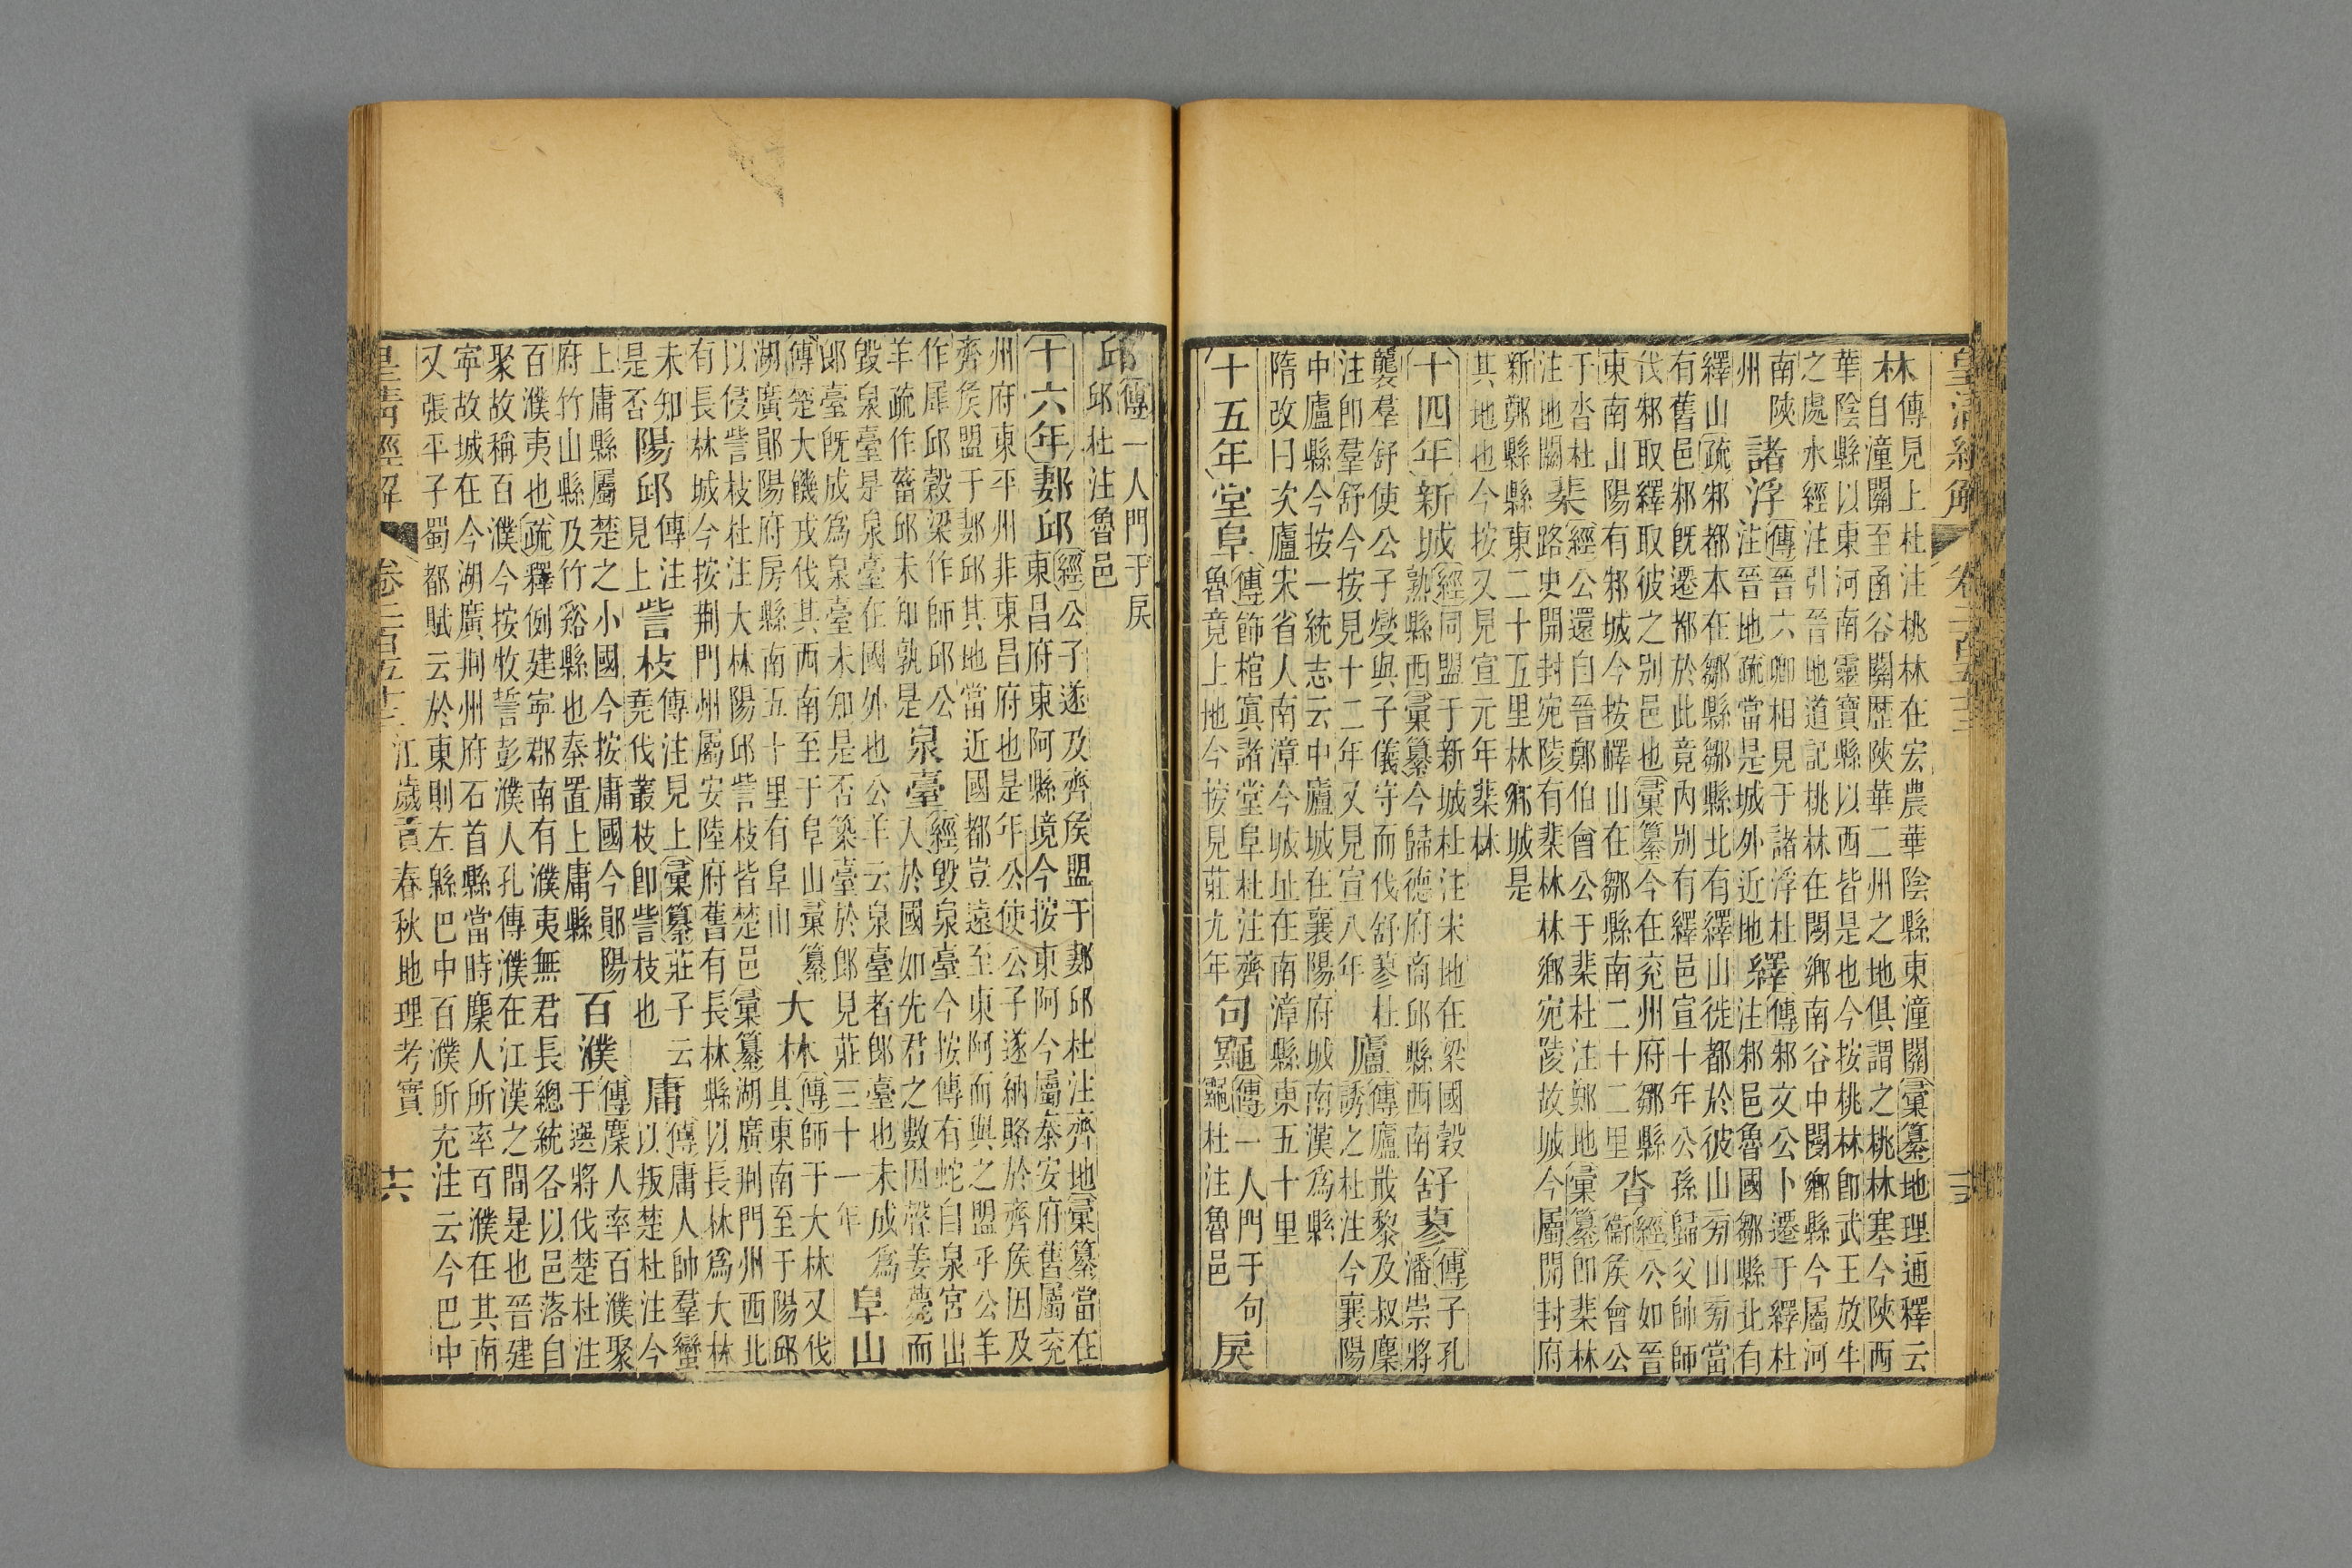 皇清經解 卷二百五十三
林 傳見上杜注桃林在宏農華陰縣東潼關彙纂地理通釋云
自潼關至函谷關歷陜華二州之地俱謂之桃林塞今陜西
華陰縣以東河南靈寶縣以西皆是也今按桃林卽武王放牛
之處水經注引晉地道記桃林在閿鄉南谷中閿鄉縣今屬河
南陜
州 諸浮 傳晉六卿相見于諸浮杜
注晉地疏當是城外近地 繹 傳邾文公卜遷于繹杜
注邾邑魯國鄒縣北有
繹山疏邾都本在鄒縣鄒縣北有繹山徙都於彼山旁山旁當
有舊邑邾旣遷都於此竟內別有繹邑宣十年公孫歸父帥師
伐邾取繹取彼之別邑也彙纂今在兗州府鄒縣
東南山陽有邾城今按嶧山在鄒縣南二十二里 沓 經公如晉
衞侯會公
于沓杜
注地闕 棐 經公還自晉鄭伯會公于棐杜注鄭地彙纂卽棐林
路史開封宛陵有棐林林鄉宛陵故城今屬開封府
新鄭縣縣東二十五里林鄉城是
其地也今按又見宣元年棐林
十四年 新城 經同盟于新城杜注宋地在梁國穀
熟縣西彙纂今歸德府商邱縣西南 舒蓼 傳子孔
潘崇將
襲羣舒使公子燮與子儀守而伐舒蓼杜
注卽羣舒今按見十二年又見宣八年 廬 傳廬戢黎及叔麋
誘之杜注今襄陽
中廬縣今按一統志云中廬城在襄陽府城南漢爲縣
隋改曰次廬宋省人南漳今城址在南漳縣東五十里
十五年 堂阜 傳飾棺寘諸堂阜杜注齊
魯竟上地今按見莊九年 句鼆 傳一人門于句
鼆杜注魯邑 戾
邱 傳一人門于戾
邱杜注魯邑
十六年 郪邱 經公子遂及齊侯盟于郪邱杜注齊地彙纂當在
東昌府東阿縣境今按東阿今屬泰安府舊屬兗
州府東平州非東昌府也是年公使公子遂納賂於齊侯因及
齊侯盟于郪邱其地當近國都豈遠至東阿而與之盟乎公羊
作犀邱穀梁作師邱公
羊疏作菑邱未知孰是 泉臺 經毀泉臺今按傳有蛇自泉宮出
人於國如先君之數因聲姜薨而
毀泉臺是泉臺在國外也公羊云泉臺者郎臺也未成爲
郎臺旣成爲泉臺未知是否築臺於郎見莊三十一年 阜山
傳楚大饑戎伐其西南至于阜山彙纂
湖廣鄖陽府房縣南五十里有阜山 大林 傳師于大林又伐
其東南至于陽邱
以侵訾枝杜注大林陽邱訾枝皆楚邑彙纂湖廣荆門州西北
有長林城今按荆門州屬安陸府舊有長林縣以長林爲大林
未知
是否 陽邱 傳注
見上 訾枝 傳注見上彙纂莊子云
堯伐叢枝卽訾枝也 庸 傳庸人帥羣蠻
以叛楚杜注今
上庸縣屬楚之小國今按庸國今鄖陽
府竹山縣及竹谿縣也秦置上庸縣 百濮 傳麇人率百濮聚
于選將伐楚杜注
百濮夷也疏釋例建寧郡南有濮夷無君長總統各以邑落自
聚故稱百濮今按牧誓彭濮人孔傳濮在江漢之間是也晉建
寧故城在今湖廣荆州府石首縣當時麇人所率百濮在其南
又張平子蜀都賦云於東則左緜巴中百濮所充注云今巴中
皇清經解 卷二百五十三 江歲貢春秋地理考實 十六